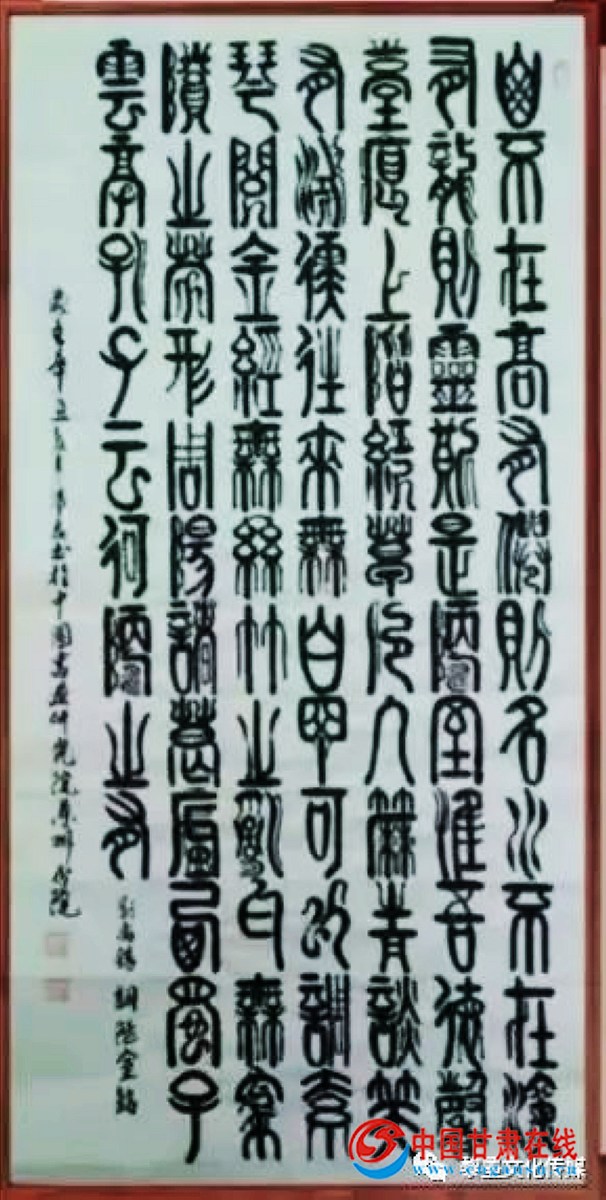 山不在高有僊則名水不在深
有龍則靈斯是陋室惟吾德馨
苔痕上階綠草色入簾青談笑
有鴻儒往來無白丁可以調素
琴閱金經無絲竹之亂耳無案
牘之勞形南陽諸葛廬西蜀子
雲亭孔子云何陋之有
劉禹錫 詞陋室銘
辛丑 書於中國書畫研究院蘭州分院
中国甘肃在线
文化传媒